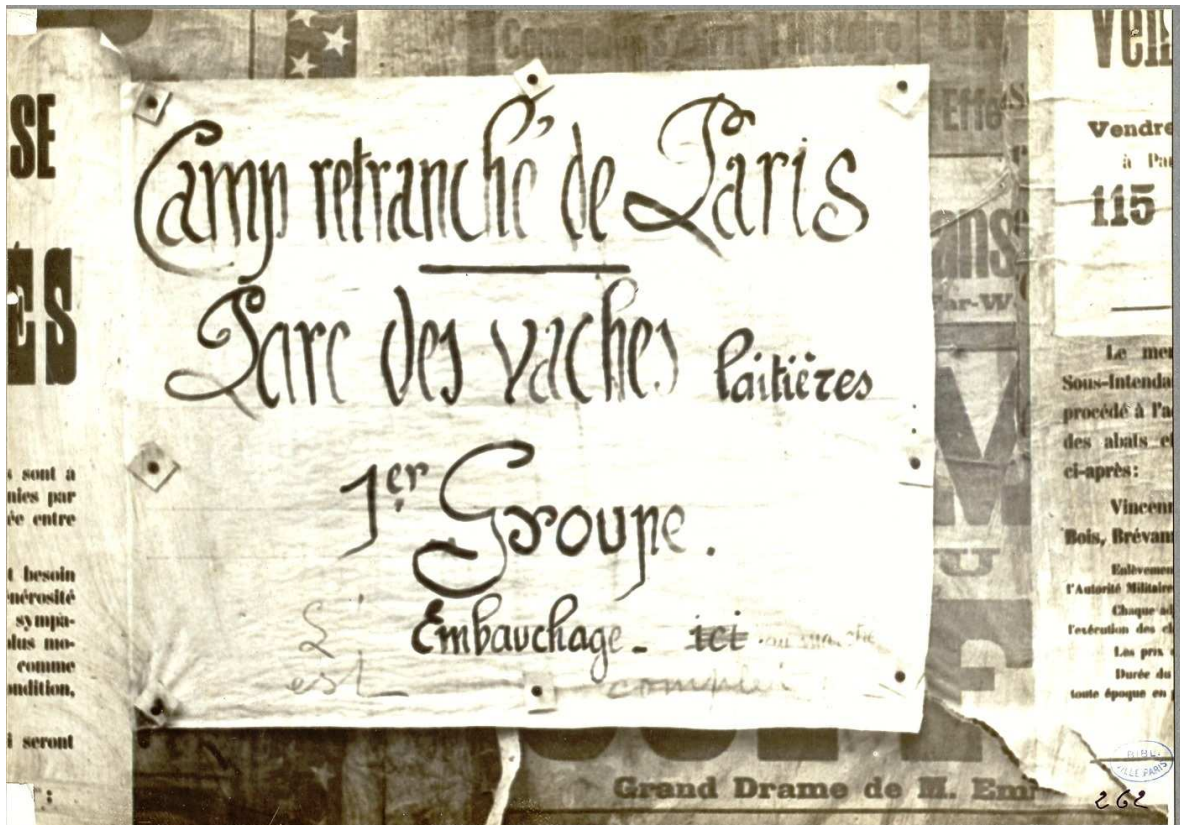 SE
ES
s sont à
nies par
ée entre
t besoin
énérosité
sympa-
plus mo-
comme
ondition,
i seront
Camp retranché de Paris
Parc des vaches laitières
1er Groupe.
Embauchage - ici au marché
L'
est complet
ans
Far-W
Grand Drame de M. Em
Ven
Vendre
à Pa
115
Le mer
Sous-Intenda
procédé à l'a
des abats et
ci-après:
Vincenn
Bois, Brévann
Enlèvemen
l'Autorité Militaire
Chaque ad
l'exécution des cl
Les prix
Durée du
toute époque en
BIBL.
VILLE PARIS
262